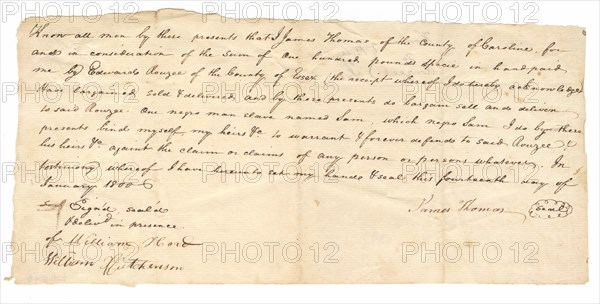 Know all men by these presents that I James Thomas of the County of Caroline, for
and in consideration of the Sum of One hundred pounds specie in hand paid
me by Edward Rouzee of the County of Essex, the receipt whereof I do hereby acknowledge
have bargained sold & delivered, and by these presents do bargain sell and deliver
to said Rouzee One negro man slave named Sam, which negro Sam I do by these
presents bind myself, my heirs &c to warrant & forever defend to said Rouzee &
his heirs &c against the claim or claims of any person or persons whatever. In
testimony whereof I have hereunto set my hand & seal this fourteenth day of
January 1800
Sign'd seal'd
& deliv'd in presence
James Thomas seal
of William Hord
William Hutchenson
PHOTO12